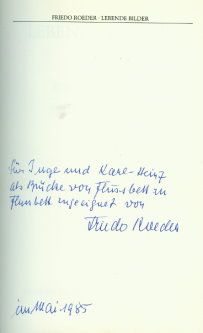 FRIEDO ROEDER · LEBENDE BILDER
für Inge und Karl-Heinz
als Brücke von Flussbett zu
Flussbett zugeeignet von
Friedo Roeder
im Mai 1985